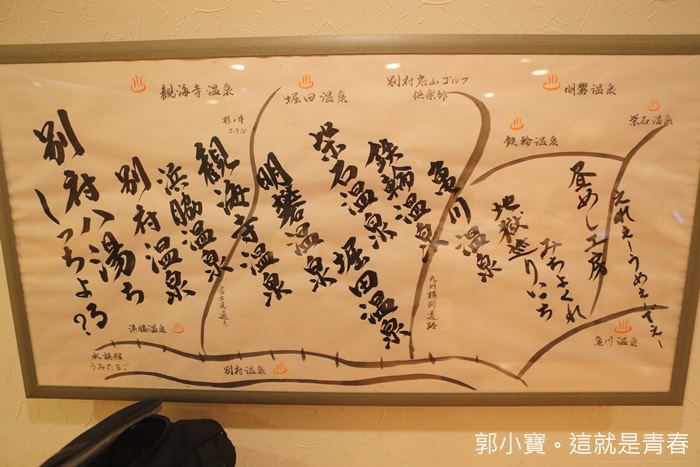 観海寺温泉
堀田温泉
別府扇山ゴルフ
倶楽部
明礬温泉
柴石温泉
鉄輪温泉
杉乃井
ホテル
えれぇーうめぇでぇー
昼めし工房
みちよくれ
地獄巡りいち
亀川温泉
鉄輪温泉
堀田温泉
柴石温泉
明礬温泉
観海寺温泉
浜脇温泉
別府温泉
別府八湯ち
しっちょる?
富士見通り
九州横断道路
浜脇温泉
水族館
うみたまご
別府温泉
亀川温泉
郭小寶。這就是青春